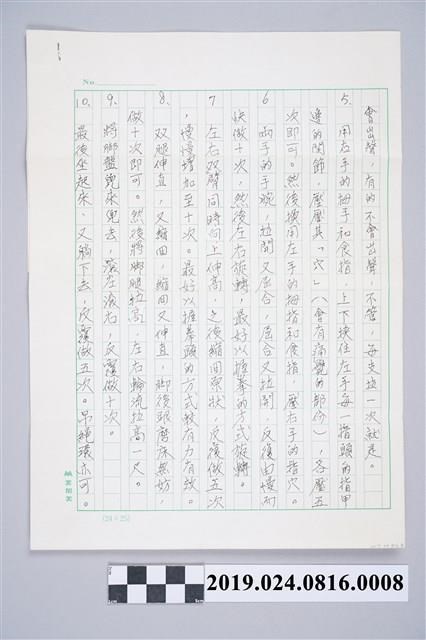 No.
會出聲，有的不會出聲，不管，每支拉一次就是。
5. 用右手的拇手和食指，上下挾住左手每一指頭的指甲
邊的関節，壓壓其「穴」（會有痛覺的部份），各壓五
次即可。然後換用左手的拇指和食指，壓右手的指穴。
6 兩手的手腕，拉開又屈合，屈合又拉開，反復由慢而
快做十次，然後左右旋轉，最好以握拳的方式旋轉。
7 左右双臂同時向上伸高，之後縮回原狀，反復做五次
，慢慢增加至十次。最好以握拳頭的方式較有力有效。
8. 双腿伸直，又縮回，縮回又伸直，脚後跟磨床無妨，
做十次即可。然後將脚腿拉高，左右輪流拉高一尺。
9. 將脚盤兜來兜去，落左落右，反覆做十次。
10. 最後坐起來，又躺下去，反覆做五次。吊繩環亦可。
(24×25)
2019.024.0816.0008